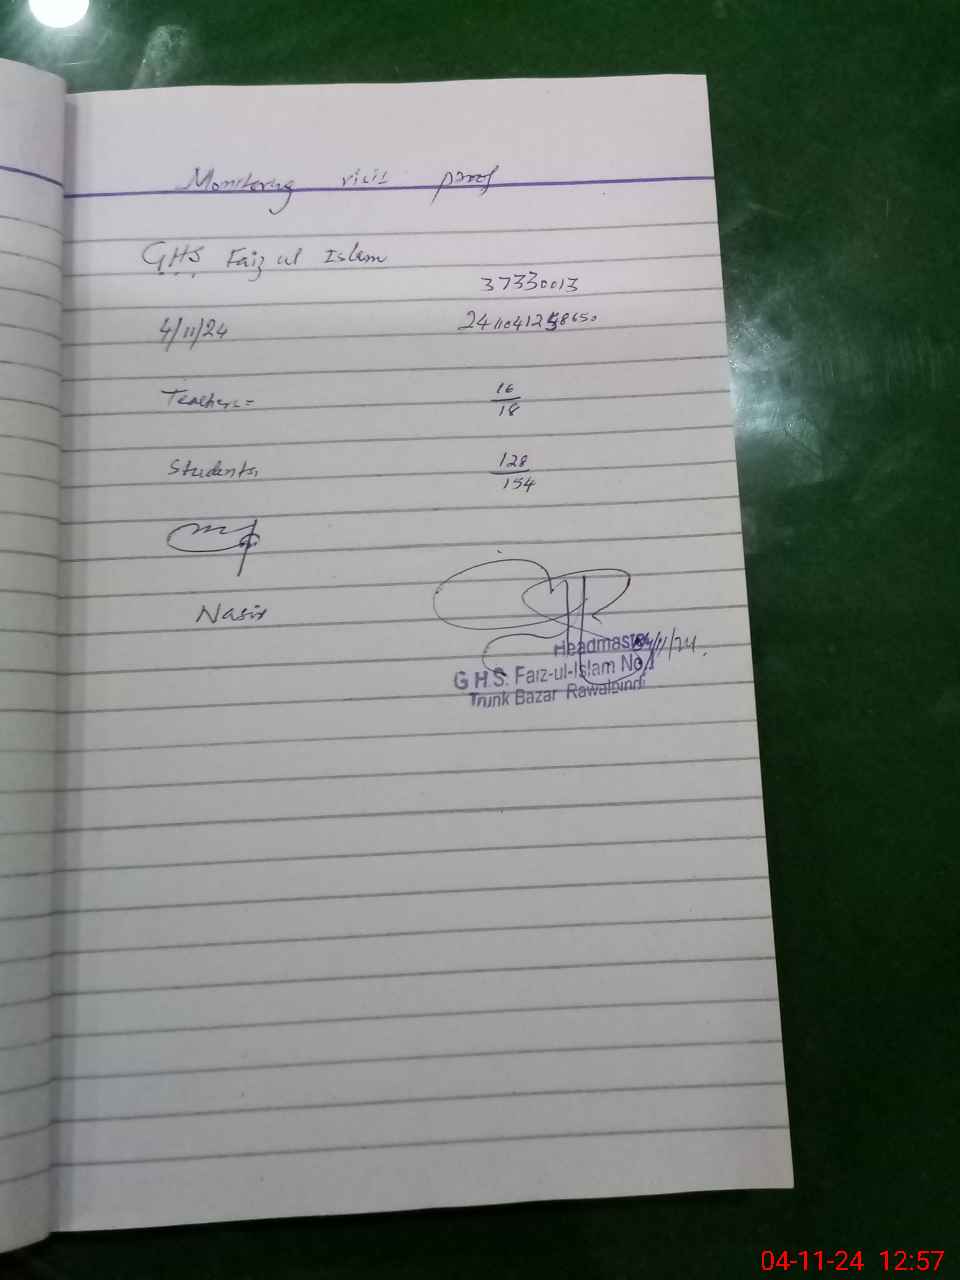 Monitoring visit proof
GHS Faiz ul Islam
37330013
4/11/24
2411041258650
Teachers=
16
18
Students,
128
154
Nasir
Headmaster
4/11/24.
G.H.S. Faiz-ul-Islam No.1
Trunk Bazar Rawalpindi
04-11-24 12:57